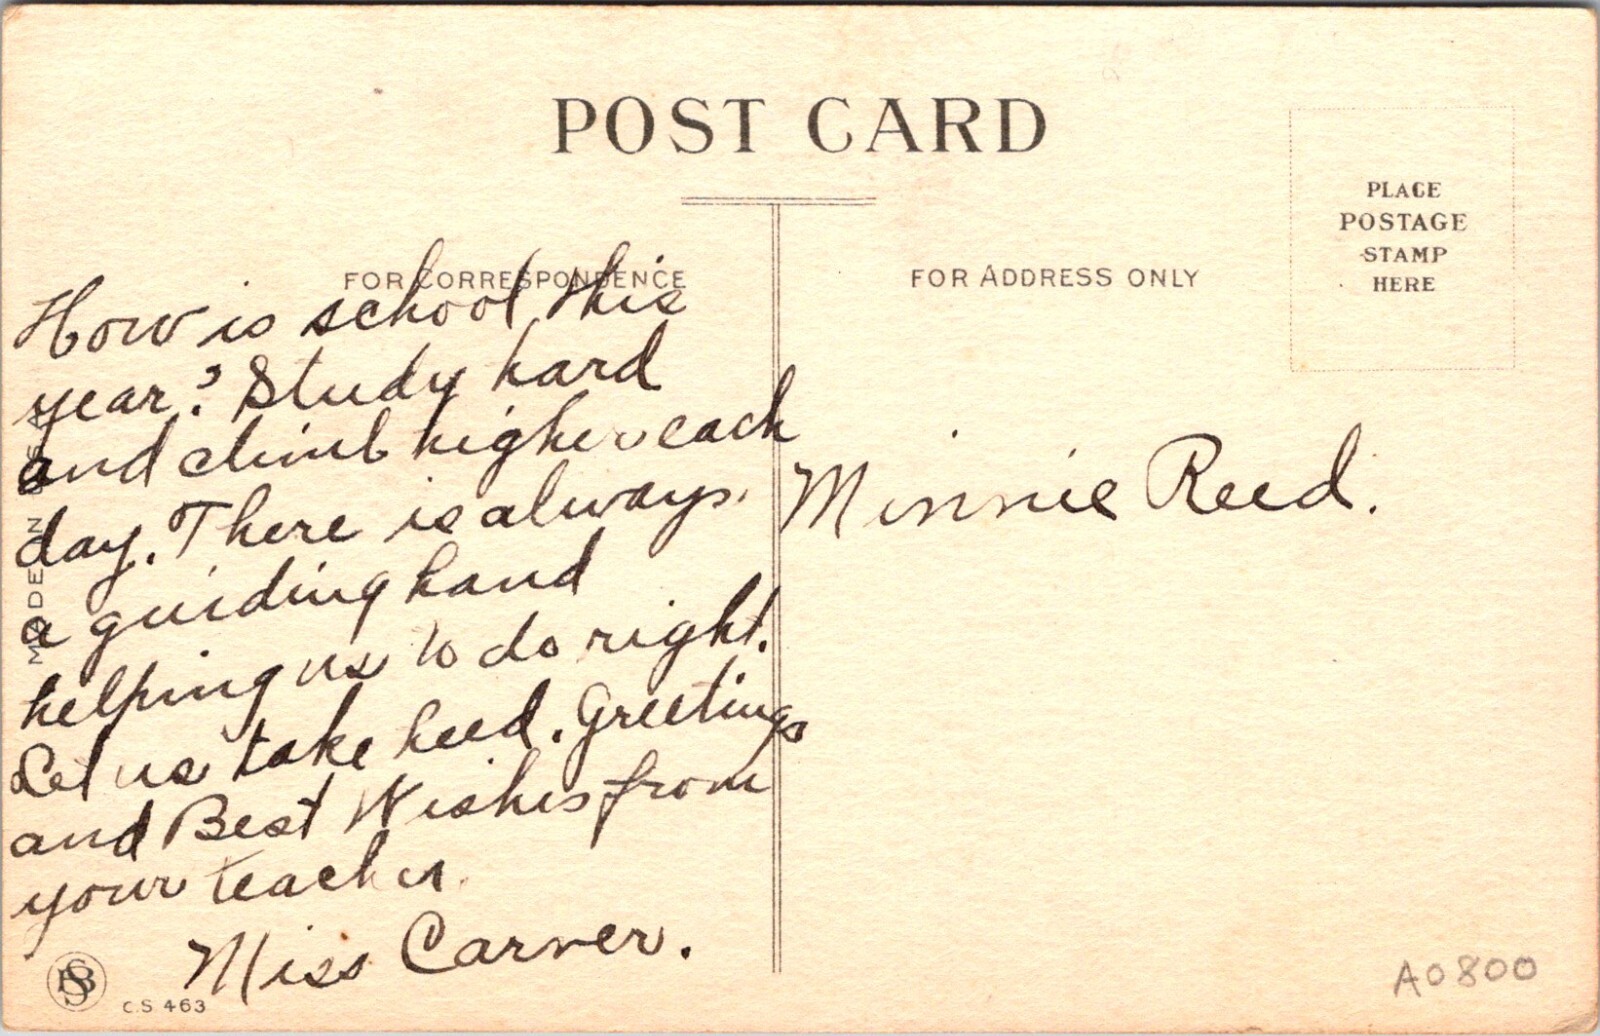 POST CARD
PLACE
POSTAGE
STAMP
HERE
FOR CORRESPONDENCE
FOR ADDRESS ONLY
How is school this
year? Study hard
and climb higher each
day. There is always
a guiding hand
helping us to do right.
Let us take heed. Greetings
and Best Wishes from
your teacher.
Miss Carver.
Minnie Reed.
C.S. 463
A0800